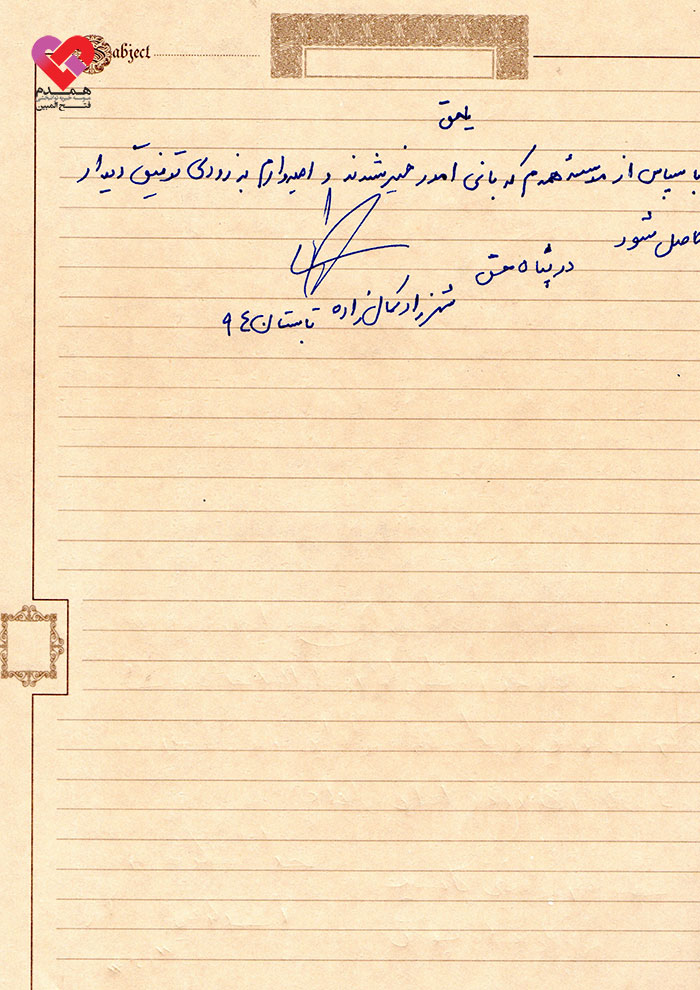 Sabject
همدم
موسسه خیریه توانبخشی
فتح المبین
یا حق
با سپاس از موسسهٔ همدم که بانی امور خیر شدند و امیدوارم به زودی توفیق دیدار
حاصل شود
در پناه حق
شهرزاد کمال زاده تابستان ۹٤